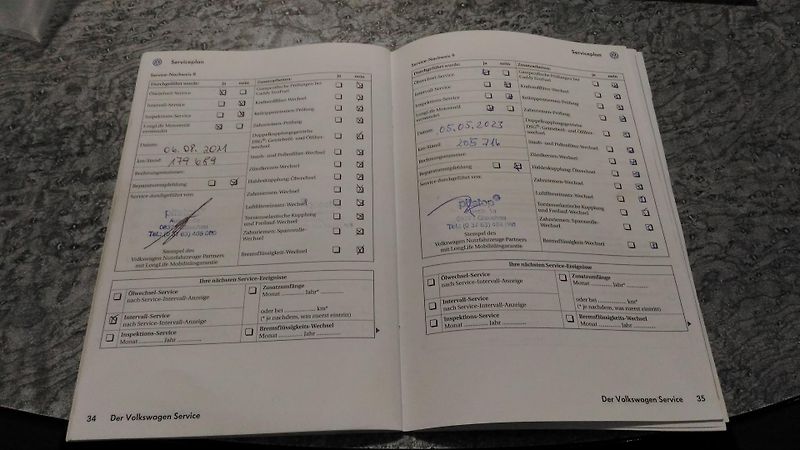 Serviceplan
Service-Nachweis 8
Durchgeführt wurde: ja nein
Ölwechsel-Service
Intervall-Service
Inspektions-Service
LongLife Motorenöl
verwendet
Datum: 06.08.2021
km-Stand: 179 689
Rechnungsnummer:
Reparaturempfehlung
Service durchgeführt von:
Stempel des
Volkswagen Nutzfahrzeuge Partners
mit LongLife Mobilitätsgarantie
Zusatzarbeiten: ja nein
Gasspezifische Prüfungen bei
Caddy EcoFuel
Kraftstofffilter-Wechsel
Keilrippenriemen-Prüfung
Zahnriemen-Prüfung
Doppelkupplungsgetriebe
DSG®: Getriebeöl- und Ölfilter-
wechsel
Staub- und Pollenfilter-Wechsel
Zündkerzen-Wechsel
Haldexkupplung-Ölwechsel
Zahnriemen-Wechsel
Luftfiltereinsatz-Wechsel
Torsionselastische Kupplung
und Freilauf-Wechsel
Zahnriemen-Spannrolle-
Wechsel
Bremsflüssigkeits-Wechsel
Ihre nächsten Service-Ereignisse
Ölwechsel-Service
nach Service-Intervall-Anzeige
Intervall-Service
nach Service-Intervall-Anzeige
Inspektions-Service
Monat ........... Jahr ...........
Zusatzumfänge
Monat ........... Jahr* ...........
oder bei ........... km*
(* je nachdem, was zuerst eintritt)
Bremsflüssigkeits-Wechsel
Monat ........... Jahr ...........
34 Der Volkswagen Service
Serviceplan
Service-Nachweis 9
Durchgeführt wurde: ja nein
Ölwechsel-Service
Intervall-Service
Inspektions-Service
LongLife Motorenöl
verwendet
Datum: 05.05.2023
km-Stand: 205 716
Rechnungsnummer:
Reparaturempfehlung
Service durchgeführt von:
Stempel des
Volkswagen Nutzfahrzeuge Partners
mit LongLife Mobilitätsgarantie
Zusatzarbeiten: ja nein
Gasspezifische Prüfungen bei
Caddy EcoFuel
Kraftstofffilter-Wechsel
Keilrippenriemen-Prüfung
Zahnriemen-Prüfung
Doppelkupplungsgetriebe
DSG®: Getriebeöl- und Ölfilter-
wechsel
Staub- und Pollenfilter-Wechsel
Zündkerzen-Wechsel
Haldexkupplung-Ölwechsel
Zahnriemen-Wechsel
Luftfiltereinsatz-Wechsel
Torsionselastische Kupplung
und Freilauf-Wechsel
Zahnriemen-Spannrolle-
Wechsel
Bremsflüssigkeits-Wechsel
Ihre nächsten Service-Ereignisse
Ölwechsel-Service
nach Service-Intervall-Anzeige
Intervall-Service
nach Service-Intervall-Anzeige
Inspektions-Service
Monat ........... Jahr ...........
Zusatzumfänge
Monat ........... Jahr* ...........
oder bei ........... km*
(* je nachdem, was zuerst eintritt)
Bremsflüssigkeits-Wechsel
Monat ........... Jahr ...........
Der Volkswagen Service 35